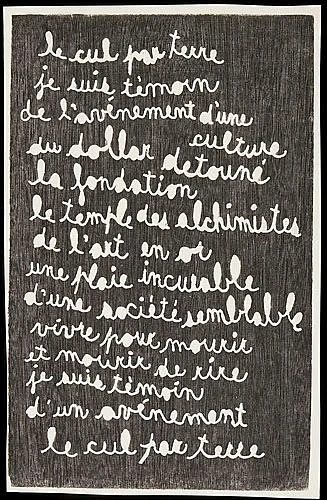 le cul par terre
je suis témoin
de l'avénement d'une
culture
du dollar detouné
la fondation
le temple des alchimistes
de l'art en or
une plaie incurable
d'une société semblable
vivre pour mourir
et mourir de rire
je suis témoin
d'un avénement
le cul par terre